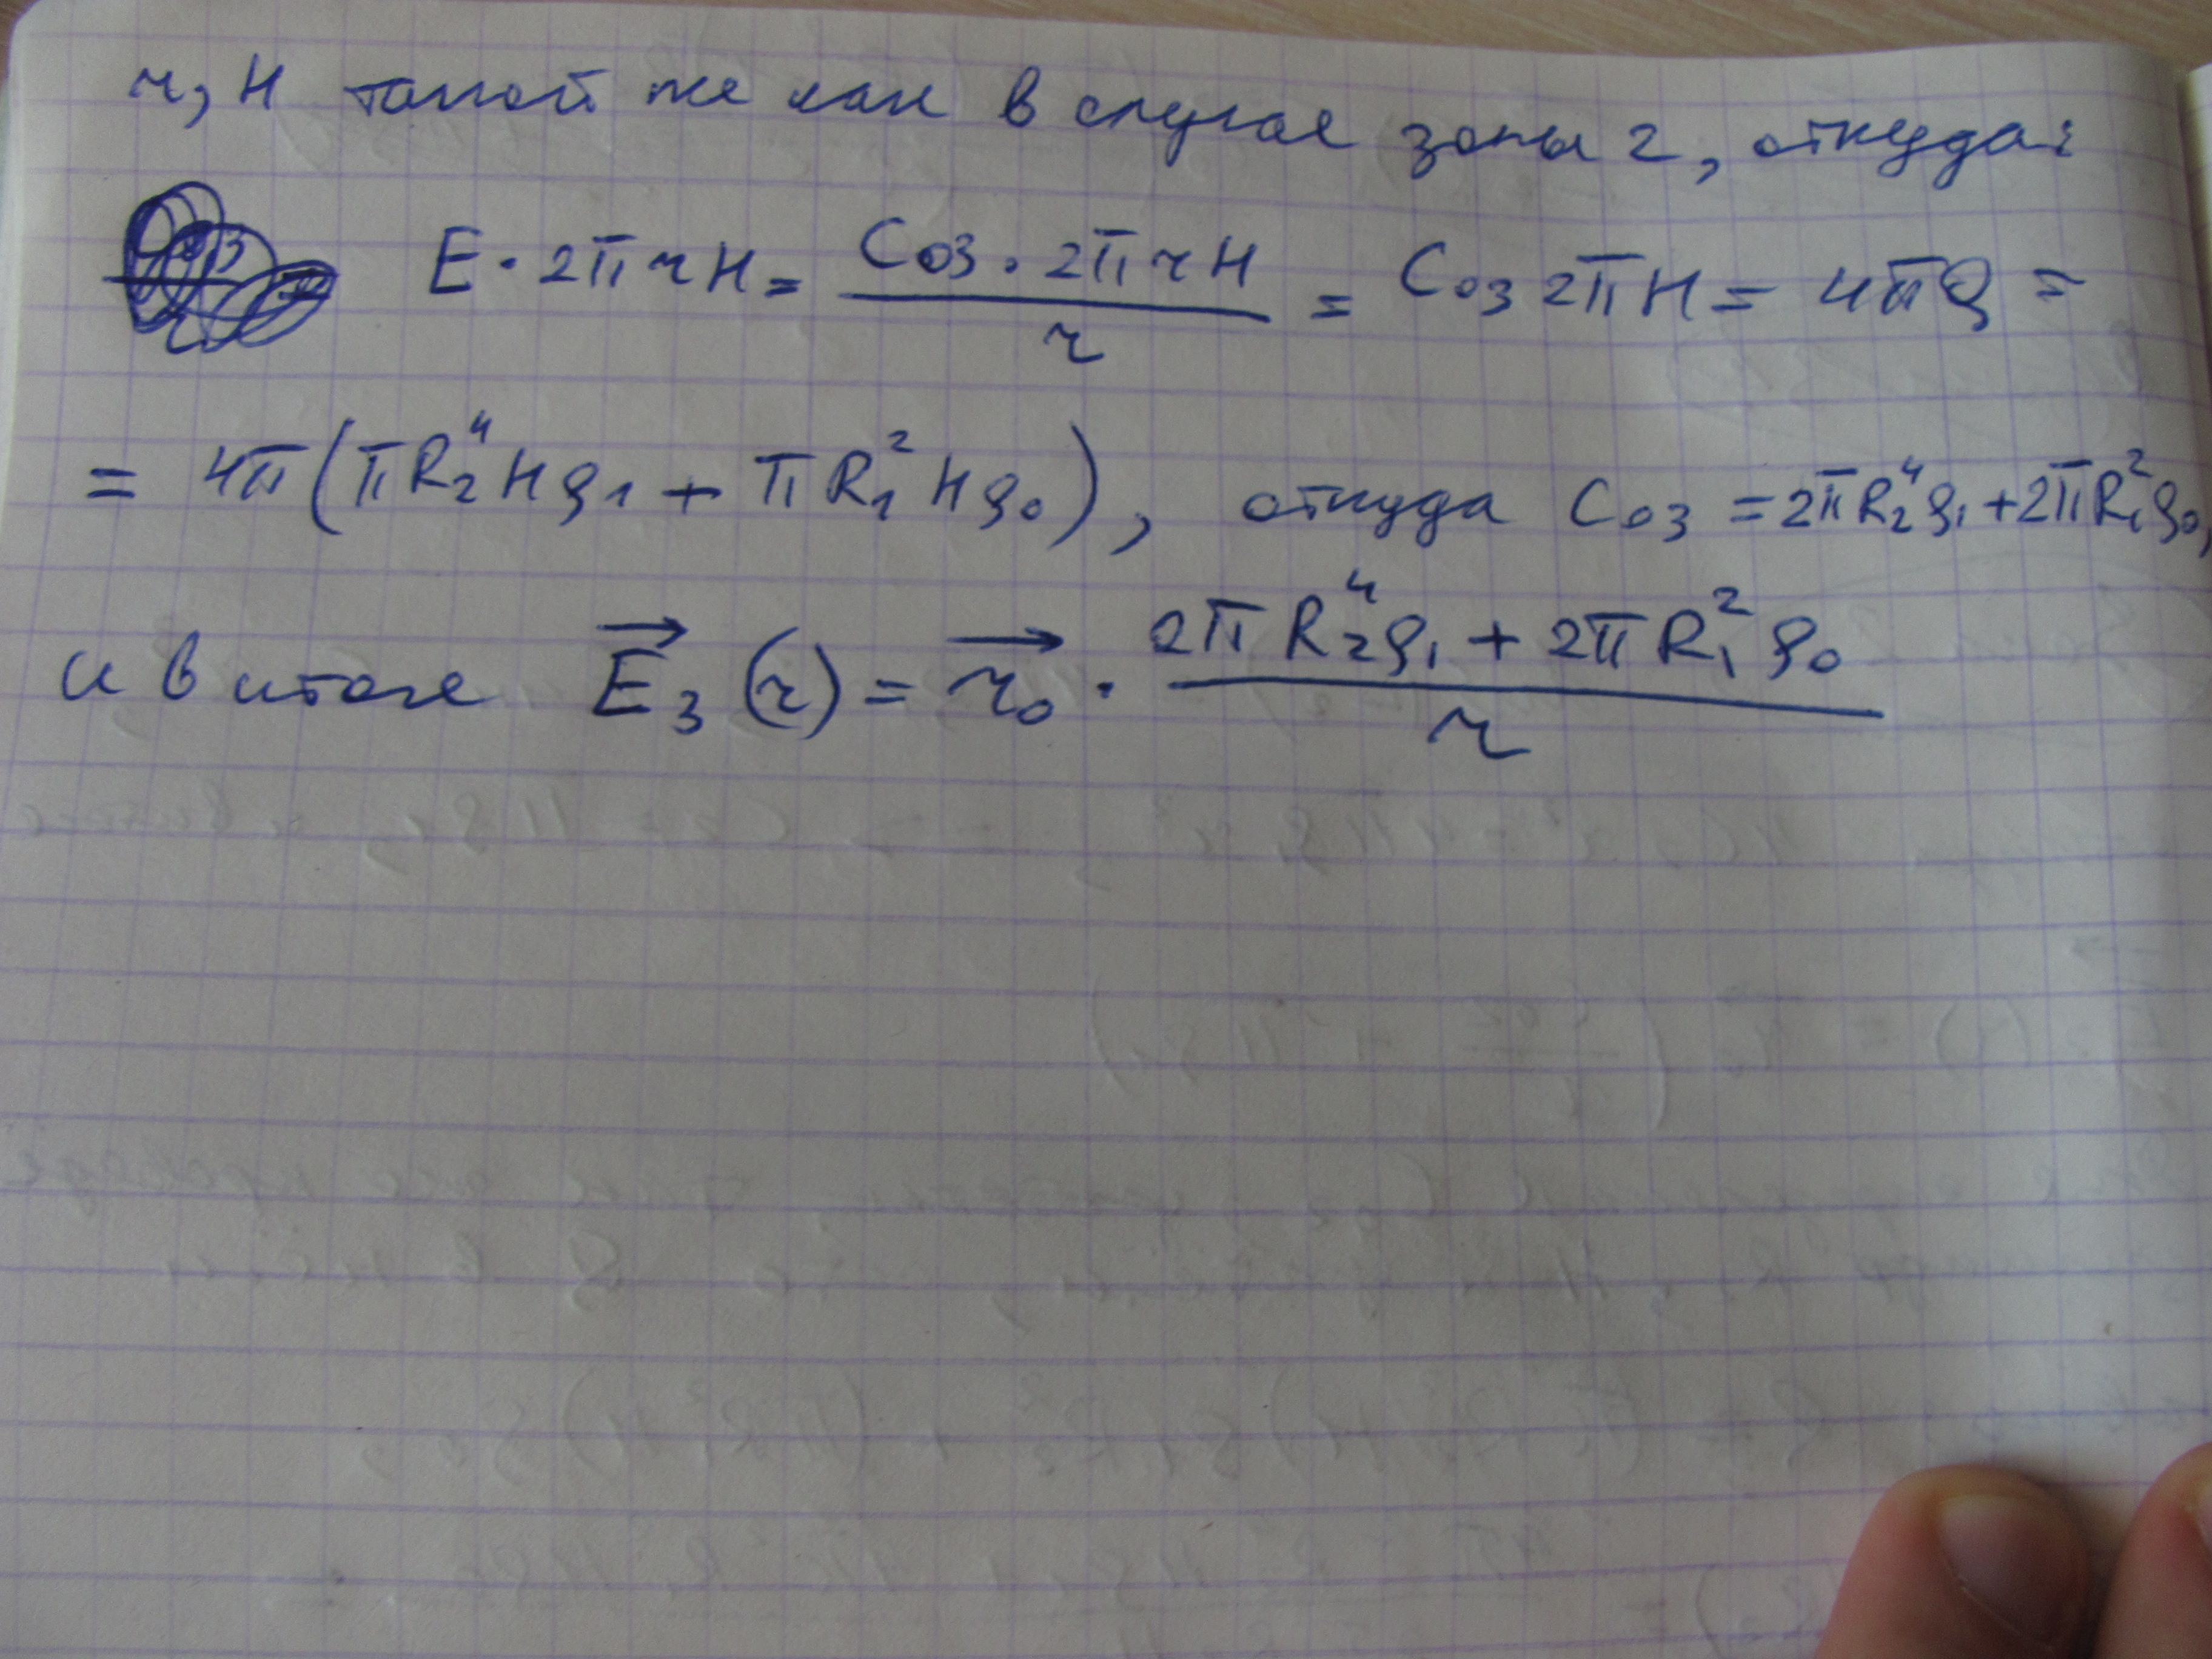 r, H такой же как в случае зоны 2, откуда:
E · 2πrH = C₀₃ · 2πrH / r = C₀₃ 2πH = 4πQ =
= 4π(πR₂⁴Hρ₁ + πR₁²Hρ₀), откуда C₀₃ = 2πR₂⁴ρ₁ + 2πR₁²ρ₀,
и в итоге E⃗₃(r) = r⃗₀ · (2πR₂⁴ρ₁ + 2πR₁²ρ₀) / r